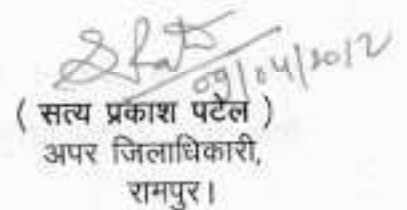 09/04/2012
( सत्य प्रकाश पटेल )
अपर जिलाधिकारी,
रामपुर।